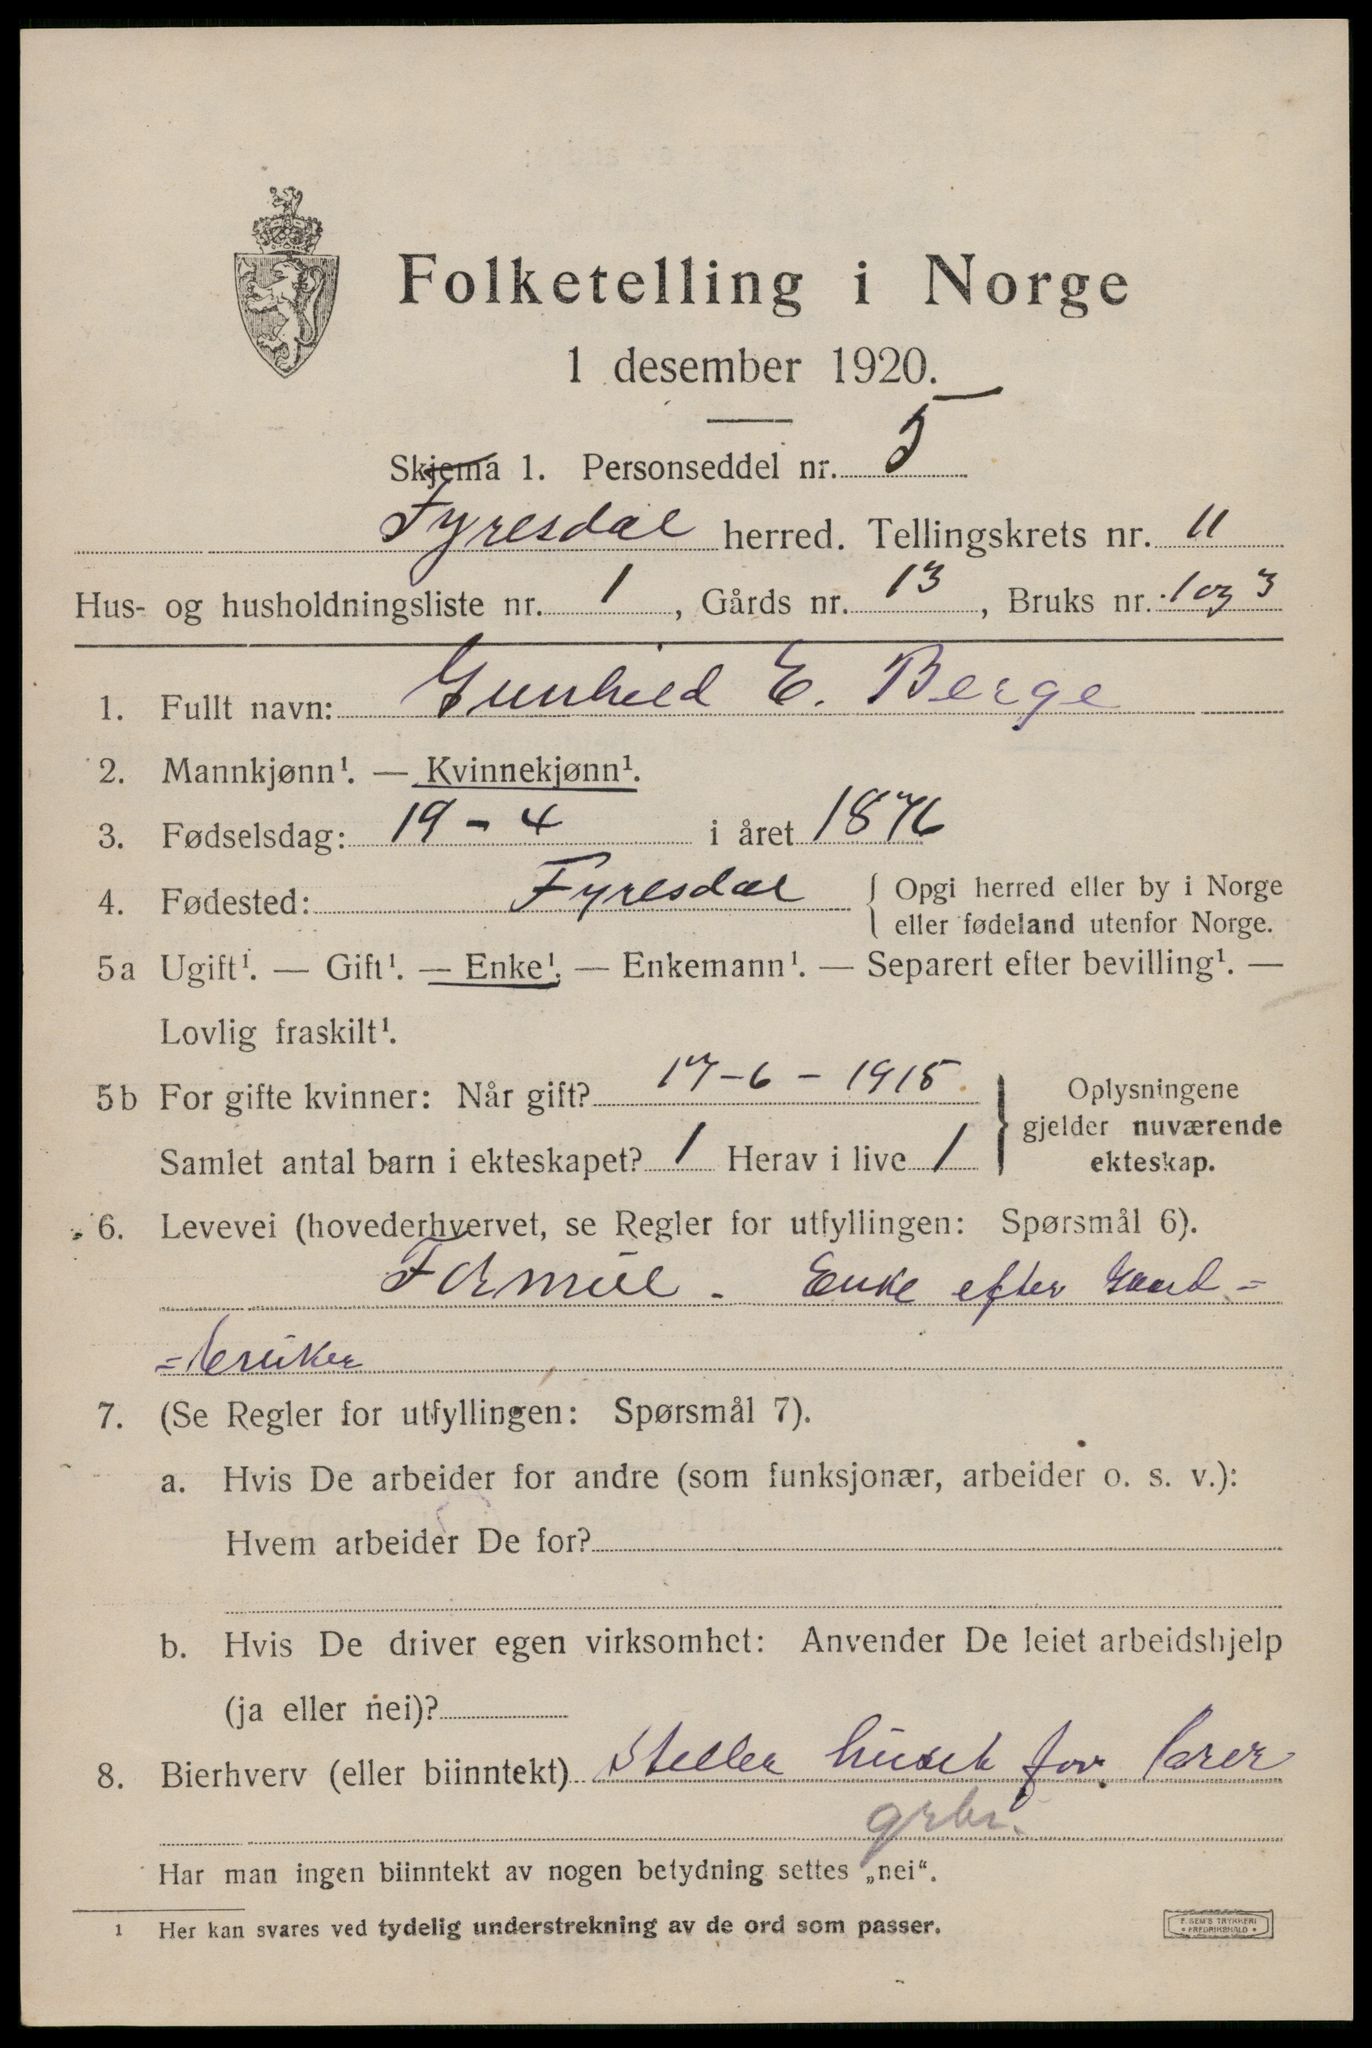 Folketelling i Norge
1 desember 1920.
Skjema 1. Personseddel nr. 5
Fyresdal herred. Tellingskrets nr. 11
Hus- og husholdningsliste nr. 1, Gårds nr. 13, Bruks nr. 1 og 3
1. Fullt navn: Gunhild E. Berge
2. Mannkjønn¹. — Kvinnekjønn¹.
3. Fødselsdag: 19 - 4 i året 1876
4. Fødested: Fyresdal { Opgi herred eller by i Norge
eller fødeland utenfor Norge.
5a Ugift¹. — Gift¹. — Enke¹. — Enkemann¹. — Separert efter bevilling¹. —
Lovlig fraskilt¹.
5b For gifte kvinner: Når gift? 17-6-1915.
Samlet antal barn i ekteskapet? 1 Herav i live 1
Oplysningene
gjelder nuværende
ekteskap.
6. Levevei (hovederhvervet, se Regler for utfyllingen: Spørsmål 6).
Formue - Enke efter Gaard=
=bruker
7. (Se Regler for utfyllingen: Spørsmål 7).
a. Hvis De arbeider for andre (som funksjonær, arbeider o. s. v.):
Hvem arbeider De for?
b. Hvis De driver egen virksomhet: Anvender De leiet arbeidshjelp
(ja eller nei)?
8. Bierhverv (eller biinntekt) Steller huset for
grbr.
Har man ingen biinntekt av nogen betydning settes „nei“.
1 Her kan svares ved tydelig understrekning av de ord som passer.
E. SEM'S TRYKKERI
FREDRIKSHALD